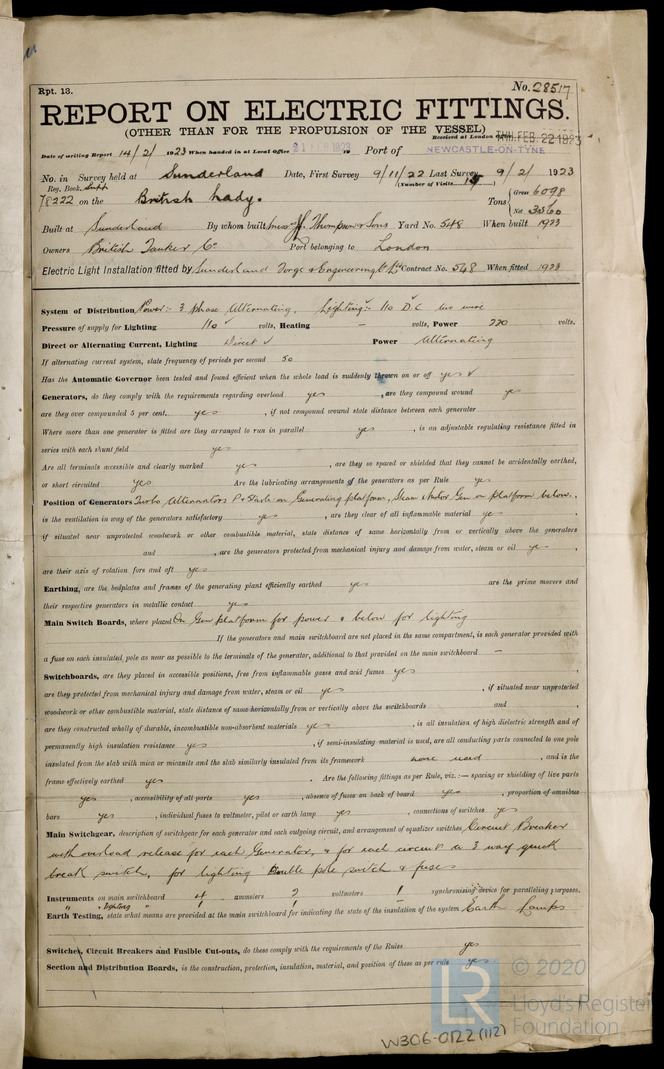 Rpt. 13.
No. 28517
REPORT ON ELECTRIC FITTINGS.
(OTHER THAN FOR THE PROPULSION OF THE VESSEL)
Received at London Office THU. FEB. 22 1923
Date of writing Report 14/2/ 1923 When handed in at Local Office 21 FEB 1923 19 Port of NEWCASTLE-ON-TYNE
No. in Survey held at Sunderland Date, First Survey 9/11/22 Last Survey 9/2/ 1923
Reg. Book. Supp. (Number of Visits
78222 on the British Lady. Tons { Gross 6098
Net 3560
Built at Sunderland By whom built Messrs J. L. Thompson & Sons Yard No. 548 When built 1923
Owners British Tanker Co Port belonging to London
Electric Light Installation fitted by Sunderland Forge & Engineering Co Ld Contract No. 548 When fitted 1923
System of Distribution Power:- 3 phase Alternating. Lighting:- 110 D.C two wire
Pressure of supply for Lighting 110 volts, Heating - volts, Power 220 volts.
Direct or Alternating Current, Lighting Direct Power Alternating
If alternating current system, state frequency of periods per second 50
Has the Automatic Governor been tested and found efficient when the whole load is suddenly thrown on or off yes
Generators, do they comply with the requirements regarding overload yes , are they compound wound yes
are they over compounded 5 per cent. yes , if not compound wound state distance between each generator
Where more than one generator is fitted are they arranged to run in parallel yes , is an adjustable regulating resistance fitted in
series with each shunt field yes
Are all terminals accessible and clearly marked yes , are they so spaced or shielded that they cannot be accidentally earthed,
or short circuited yes Are the lubricating arrangements of the generators as per Rule yes
Position of Generators Turbo Alternators P & Starb on Generating platform, Steam Motor Gen on platform below.,
is the ventilation in way of the generators satisfactory yes , are they clear of all inflammable material yes ,
if situated near unprotected woodwork or other combustible material, state distance of same horizontally from or vertically above the generators
and , are the generators protected from mechanical injury and damage from water, steam or oil yes ,
are their axis of rotation fore and aft yes
Earthing, are the bedplates and frames of the generating plant efficiently earthed yes are the prime movers and
their respective generators in metallic contact yes
Main Switch Boards, where placed On Gen platform for power & below for lighting
If the generators and main switchboard are not placed in the same compartment, is each generator provided with
a fuse on each insulated pole as near as possible to the terminals of the generator, additional to that provided on the main switchboard -
Switchboards, are they placed in accessible positions, free from inflammable gases and acid fumes yes ,
are they protected from mechanical injury and damage from water, steam or oil yes , if situated near unprotected
woodwork or other combustible material, state distance of same horizontally from or vertically above the switchboards and ,
are they constructed wholly of durable, incombustible non-absorbent materials yes , is all insulation of high dielectric strength and of
permanently high insulation resistance yes , if semi-insulating material is used, are all conducting parts connected to one pole
insulated from the slab with mica or micanite and the slab similarly insulated from its framework none used , and is the
frame effectively earthed yes . Are the following fittings as per Rule, viz.:— spacing or shielding of live parts
yes , accessibility of all parts yes , absence of fuses on back of board yes , proportion of omnibus
bars yes , individual fuses to voltmeter, pilot or earth lamp yes , connections of switches yes
Main Switchgear, description of switchgear for each generator and each outgoing circuit, and arrangement of equalizer switches Circuit Breaker
with overload release for each Generator, & for each circuit a 3 way quick
break switch, for lighting Double pole switch & fuses
Instruments on main switchboard 4 ammeters 2 voltmeters 1 synchronising device for paralleling purposes.
" " lighting " 1 1
Earth Testing, state what means are provided at the main switchboard for indicating the state of the insulation of the system Earth Lamps
Switches, Circuit Breakers and Fusible Cut-outs, do these comply with the requirements of the Rules yes
Section and Distribution Boards, is the construction, protection, insulation, material, and position of these as per rule yes
LR
© 2020
Lloyd's Register
Foundation
W306-0122 (1/2)